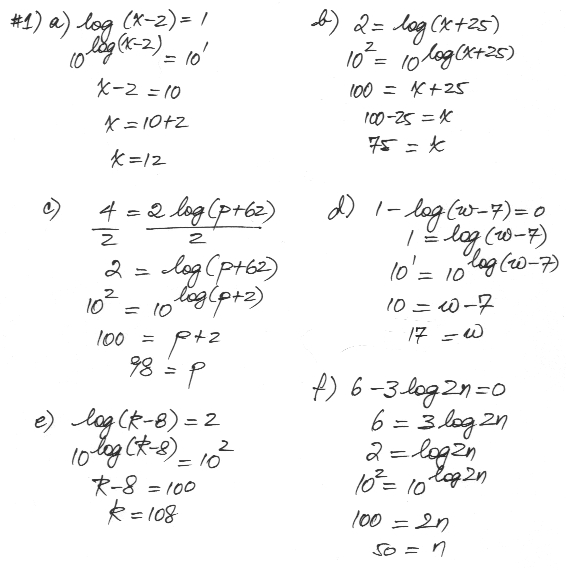 #1) a) log (x-2) = 1
10^log(x-2) = 10^1
x-2 = 10
x = 10+2
x = 12
b) 2 = log(x+25)
10^2 = 10^log(x+25)
100 = x+25
100-25 = x
75 = x
c) 4/2 = 2 log(p+62)/2
2 = log(p+62)
10^2 = 10^log(p+2)
100 = p+2
98 = p
d) 1 - log(w-7) = 0
1 = log(w-7)
10^1 = 10^log(w-7)
10 = w-7
17 = w
e) log(k-8) = 2
10^log(k-8) = 10^2
k-8 = 100
k = 108
f) 6-3 log 2n = 0
6 = 3 log 2n
2 = log 2n
10^2 = 10^log 2n
100 = 2n
50 = n